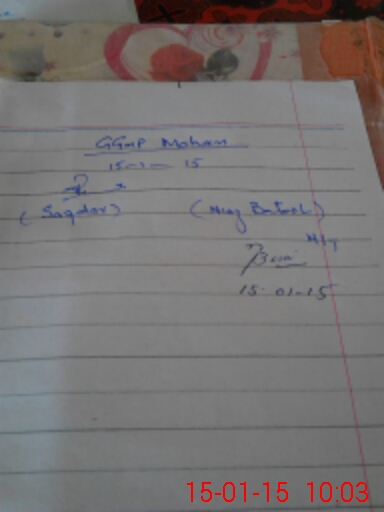 GGMP Mohan
15-1-15
(Safdar) (Niaz Batool)
15.01-15
15-01-15 10:03